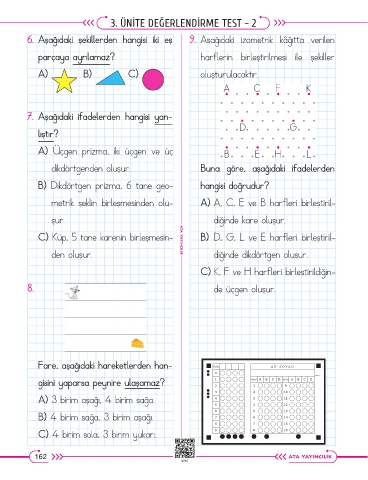 3. ÜNİTE DEĞERLENDİRME TEST - 2
6. Aşağıdaki şekillerden hangisi iki eş
parçaya ayrılamaz?
A) B) C)
7. Aşağıdaki ifadelerden hangisi yan-
lıştır?
A) Üçgen prizma, iki üçgen ve üç
dikdörtgenden oluşur.
B) Dikdörtgen prizma, 6 tane geo-
metrik şeklin birleşmesinden olu-
şur.
C) Küp, 5 tane karenin birleşmesin-
den oluşur.
8.
Fare, aşağıdaki hareketlerden han-
gisini yaparsa peynire ulaşamaz?
A) 3 birim aşağı, 4 birim sağa.
B) 4 birim sağa, 3 birim aşağı.
C) 4 birim sola, 3 birim yukarı.
9. Aşağıdaki izometrik kâğıtta verilen
harflerin birleştirilmesi ile şekiller
oluşturulacaktır.
A C F K
D G
B E H L
Buna göre, aşağıdaki ifadelerden
hangisi doğrudur?
A) A, C, E ve B harfleri birleştiril-
diğinde kare oluşur.
B) D, G, L ve E harfleri birleştiril-
diğinde dikdörtgen oluşur.
C) K, F ve H harfleri birleştirildiğin-
de üçgen oluşur.
ATA YAYINCILIK
AD SOYAD
162
ATA YAYINCILIK